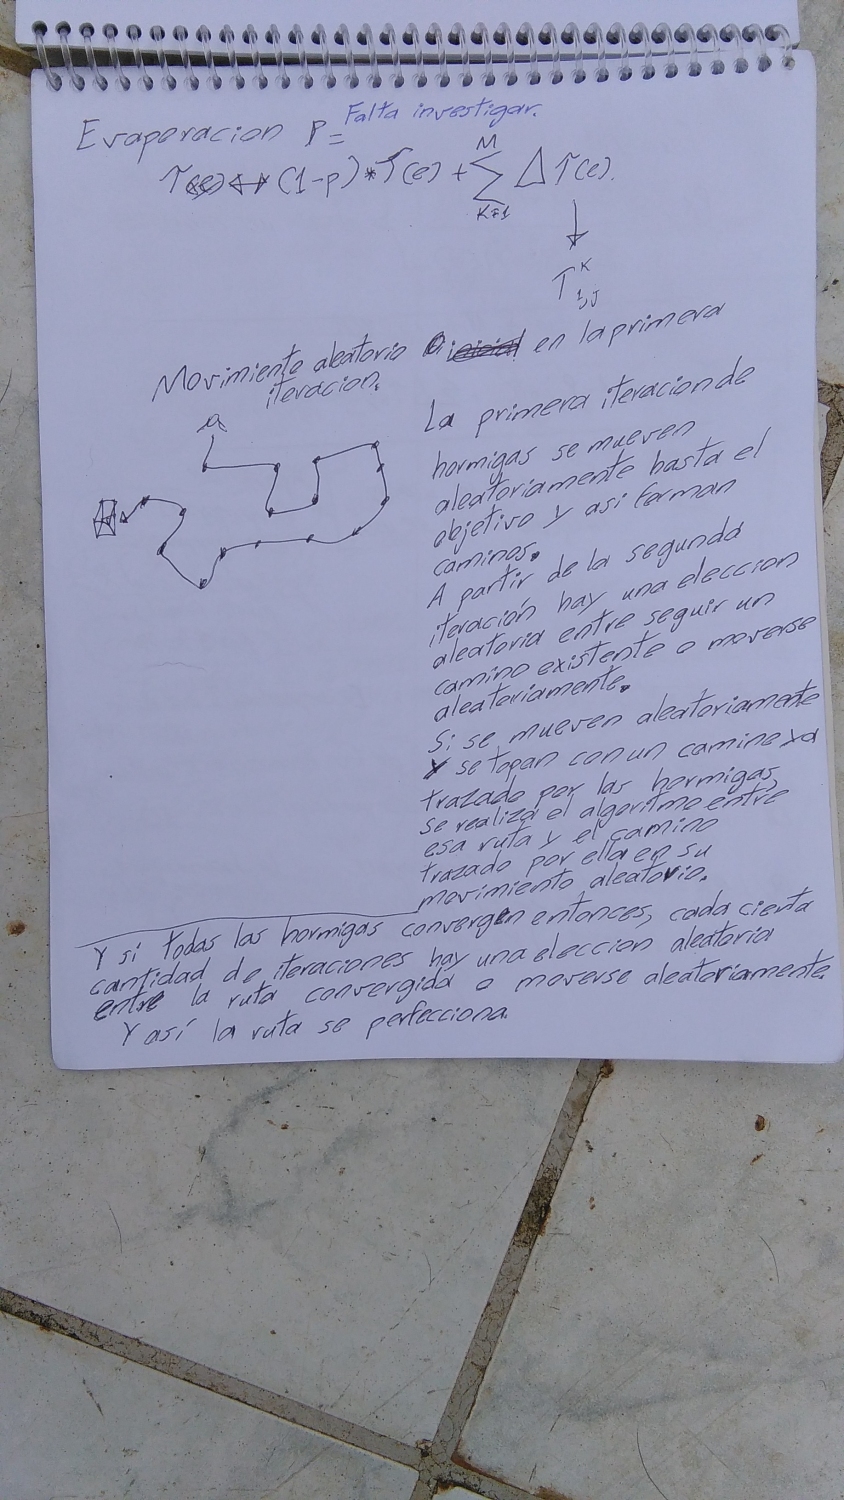 Falta investigar.
Evaporacion ρ=
τ(e) ↔ (1-ρ)*τ(e) + Σ Δ τ(e).
M
K=1
τ K i,j
Movimiento aleatorio en la primera
iteracion.
a
La primera iteracion de
hormigas se mueven
aleatoriamente hasta el
objetivo y asi forman
caminos.
A partir de la segunda
iteración hay una eleccion
aleatoria entre seguir un
camino existente o moverse
aleatoriamente.
Si se mueven aleatoriamente
y se topan con un camino ya
trazado por las hormigas,
se realiza el algoritmo entre
esa ruta y el camino
trazado por ella en su
movimiento aleatorio.
Y si todas las hormigas convergen entonces, cada cierta
cantidad de iteraciones hay una eleccion aleatoria
entre la ruta convergida o moverse aleatoriamente.
Y así la ruta se perfecciona.